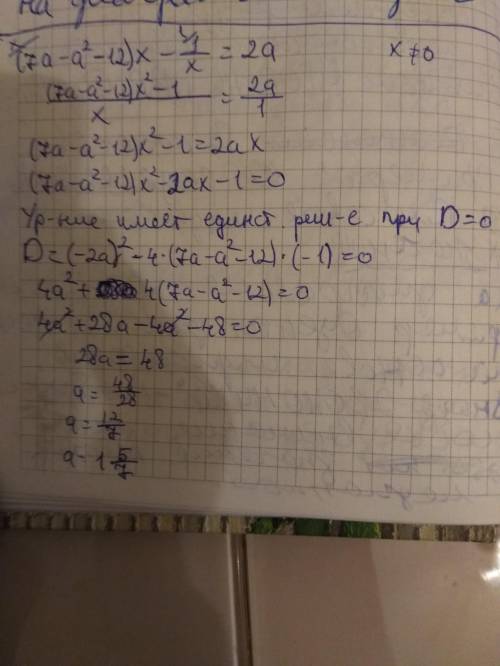 на
(7a-a²-12)x - 1/x = 2a x≠0
(7a-a²-12)x²-1 / x = 2a / 1
(7a-a²-12)x²-1=2ax
(7a-a²-12)x²-2ax-1=0
Ур-ние имеет единст. реш-е при D=0
D=(-2a)²-4·(7a-a²-12)·(-1)=0
4a²+4(7a-a²-12)=0
4a²+28a-4a²-48=0
28a=48
a=48/28
a=12/7
a-1 5/7